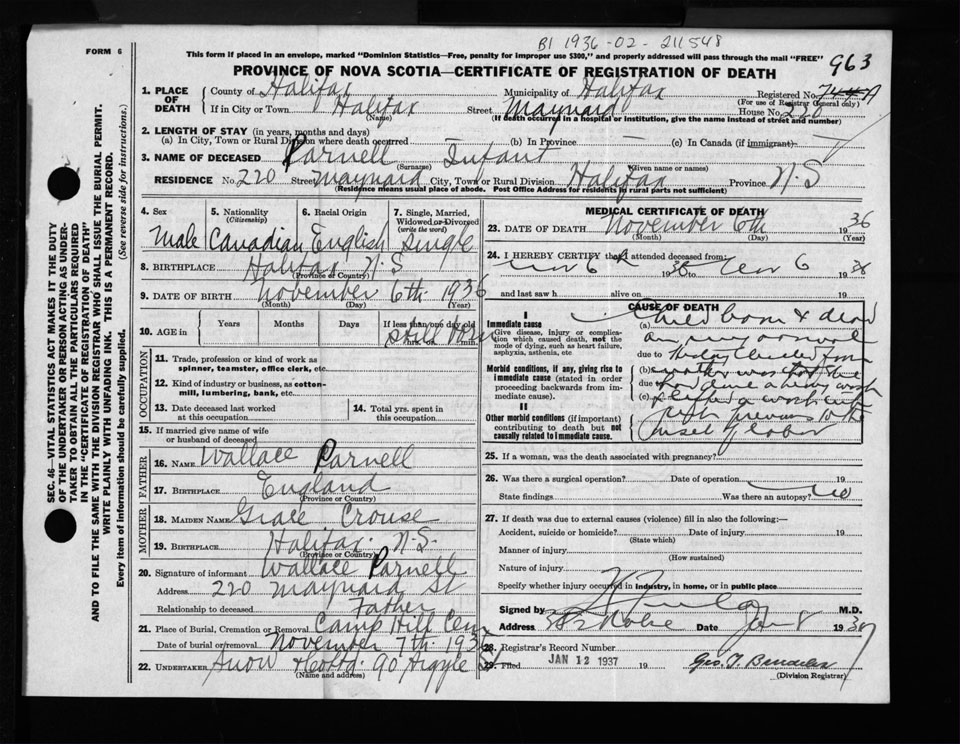 BI 1936-02-211548
963
FORM 6
This form if placed in an envelope, marked "Dominion Statistics—Free, penalty for improper use $300," and properly addressed will pass through the mail "FREE"
PROVINCE OF NOVA SCOTIA—CERTIFICATE OF REGISTRATION OF DEATH
SEC. 46—VITAL STATISTICS ACT MAKES IT THE DUTY
OF THE UNDERTAKER OR PERSON ACTING AS UNDER-
TAKER TO OBTAIN ALL THE PARTICULARS REQUIRED
IN THE "CERTIFICATE OF REGISTRATION OF DEATH"
AND TO FILE THE SAME WITH THE DIVISION REGISTRAR WHO SHALL ISSUE THE BURIAL PERMIT.
WRITE PLAINLY WITH UNFADING INK. THIS IS A PERMANENT RECORD.
Every item of information should be carefully supplied. (See reverse side for instructions.)
1. PLACE OF DEATH
County of Halifax Municipality of Halifax Registered No.
(For use of Registrar General only)
If in City or Town Halifax Street Maynard House No. 220
(Name) (If death occurred in a hospital or institution, give the name instead of street and number)
2. LENGTH OF STAY (in years, months and days)
(a) In City, Town or Rural Division where death occurred (b) In Province (c) In Canada (if immigrant)
3. NAME OF DECEASED Parnell Infant
(Surname) (Given name or names)
RESIDENCE No. 220 Street Maynard City, Town or Rural Division Halifax Province N.S
(Residence means usual place of abode. Post Office Address for residents in rural parts not sufficient)
4. Sex 5. Nationality (Citizenship) 6. Racial Origin 7. Single, Married, Widowed or Divorced (write the word)
Male Canadian English Single
8. BIRTHPLACE Halifax N.S
(Province or Country)
9. DATE OF BIRTH November 6th 1936
(Month) (Day) (Year)
10. AGE in Years Months Days If less than one day old
Still Born
hrs. or min.
OCCUPATION
11. Trade, profession or kind of work as spinner, teamster, office clerk, etc.
12. Kind of industry or business, as cotton-mill, lumbering, bank, etc.
13. Date deceased last worked at this occupation 14. Total yrs. spent in this occupation
15. If married give name of wife or husband of deceased
FATHER
16. NAME Wallace Parnell
17. BIRTHPLACE England
(Province or Country)
MOTHER
18. MAIDEN NAME Grace Crouse
19. BIRTHPLACE Halifax. N.S.
(Province or Country)
20. Signature of informant Wallace Parnell
Address 220 Maynard St
Relationship to deceased Father
21. Place of Burial, Cremation or Removal Camp Hill Cem
Date of burial or removal November 7th 1936
22. UNDERTAKER Snow & Co Ltd. 90 Argyle St
(Name and address)
MEDICAL CERTIFICATE OF DEATH
23. DATE OF DEATH November 6th 1936
(Month) (Day) (Year)
24. I HEREBY CERTIFY that I attended deceased from:
Nov 6th 1936 to Nov 6 1936
and last saw h alive on 19
CAUSE OF DEATH
I
Immediate cause
Give disease, injury or complication which caused death, not the mode of dying, such as heart failure, asphyxia, asthenia, etc
Morbid conditions, if any, giving rise to immediate cause (stated in order proceeding backwards from immediate cause).
II
Other morbid conditions (if important) contributing to death but not causally related to immediate cause.
(a) born & dead
on my arrival
due to
(b) mother was that she
due to had done a heavy wash
(c)
previous to the
onset of labor
25. If a woman, was the death associated with pregnancy?
26. Was there a surgical operation? Date of operation 19
State findings Was there an autopsy? no
27. If death was due to external causes (violence) fill in also the following:—
Accident, suicide or homicide? Date of injury 19
(State which)
Manner of injury
(How sustained)
Nature of injury
Specify whether injury occurred in industry, in home, or in public place
Signed by M.D.
Address Date Jan 8 1937
28. Registrar's Record Number
29. Filed JAN 12 1937 19
(Division Registrar)